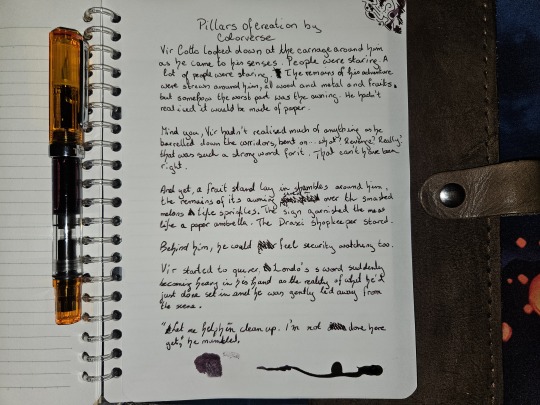 Pillars of creation by
Colorverse
Vir Cotto looked down at the carnage around him
as he came to his senses. People were staring. A
lot of people were staring. The remains of his adventure
were strewn around him, all wood and metal and fruits,
but somehow the worst part was the awning. He hadn't
realised it would be made of paper.
Mind you, Vir hadn't realised much of anything as he
barrelled down the corridors, bent on... what? Revenge? Really?
that was such a strong word for it. That can't have been
right.
And yet, a fruit stand lay in shambles around him,
the remains of its awning over the smashed
melons like sprinkles. The sign garnished the mess
like a paper umbrella. The Drazi shopkeeper stared.
Behind him, he could feel security watching too.
Vir started to quiver, Londo's sword suddenly
becoming heavy in his hand as the reality of what he'd
just done set in and he was gently led away from
the scene.
"Let me help him clean up. I'm not done here
yet," he mumbled.